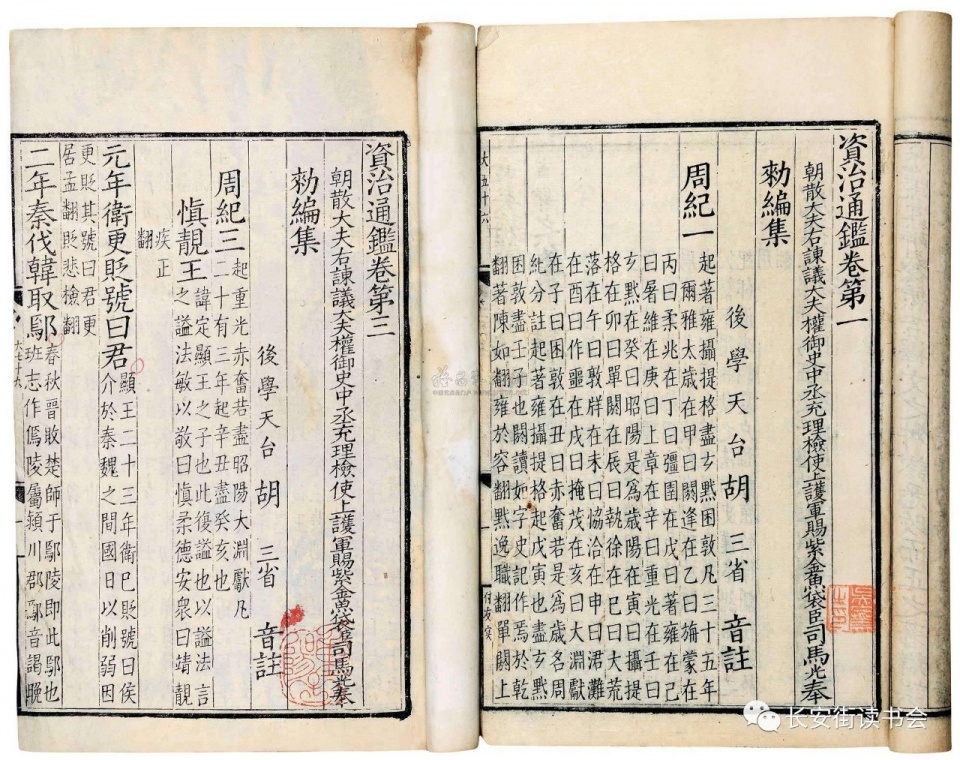 資治通鑑卷第一
朝散大夫右諫議大夫權御史中丞充理檢使上護軍賜紫金魚袋臣司馬光奉
勑編集
後學天台胡三省音註
周紀一
起著雍攝提格盡玄黓困敦凡三十五年
爾雅太歲在甲曰閼逢在乙曰旃蒙在
丙曰柔兆在丁曰彊圉在戊曰著雍在己
曰屠維在庚曰上章在辛曰重光在壬曰
玄黓在癸曰昭陽是為歲陽在寅曰攝提
格在卯曰單閼在辰曰執徐在巳曰大荒
落在午曰敦牂在未曰協洽在申曰涒灘
在酉曰作噩在戌曰掩茂在亥曰大淵獻
在子曰困敦在丑曰赤奮若是為歲名周
紀分註起著雍攝提格起戊寅也盡玄黓
困敦盡壬子也閼讀如字史記作焉於乾
翻著陳如翻雍於容翻黓逸職翻單閼上
資治通鑑卷第三
朝散大夫右諫議大夫權御史中丞充理檢使上護軍賜紫金魚袋臣司馬光奉
勑編集
後學天台胡三省音註
周紀三
起重光赤奮若盡昭陽大淵獻凡
二十有三年起辛丑盡癸亥也
慎靚王
諱定顯王之子也此復謚也以謚法言
之謚法敏以敬曰慎柔德安衆曰靖靚
疾正
翻
元年衛更貶號曰君
顯王二十三年衛已貶號曰侯
介於秦魏之間國日以削弱因
更貶其號曰君更
居孟翻貶悲檢翻
二年秦伐韓取鄢
春秋晉敗楚師于鄢陵即此鄢也
班志作傿陵屬潁川郡鄢音謁晚
长安街读书会